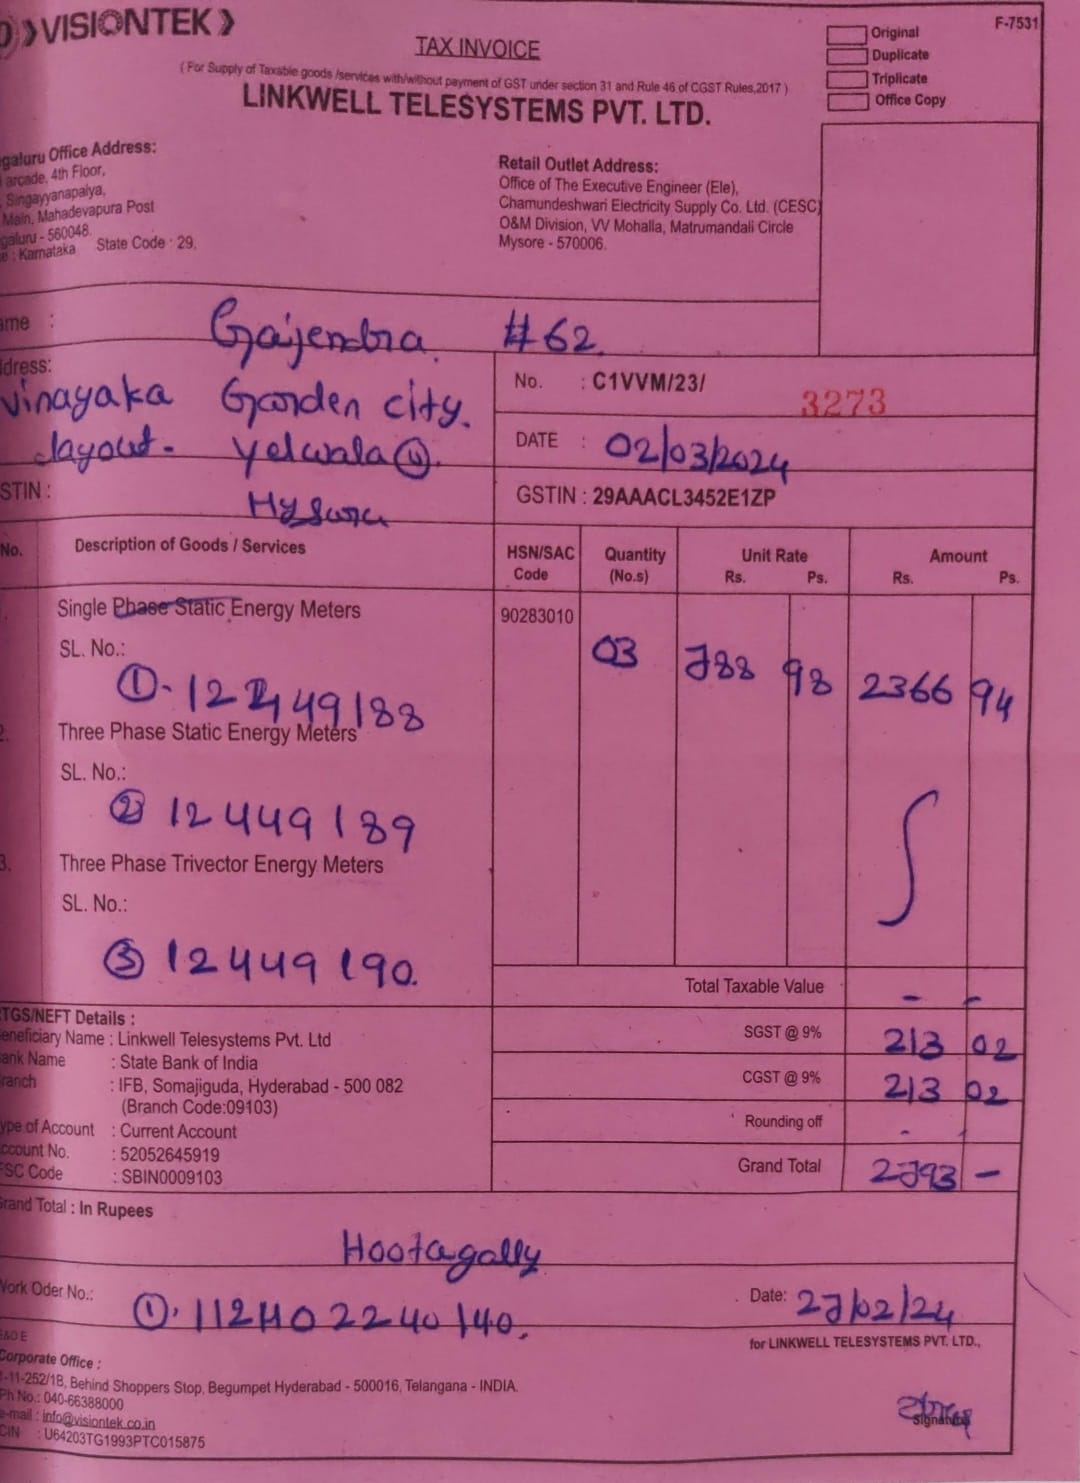 VISIONTEK
F-7531
TAX INVOICE
Original
Duplicate
Triplicate
Office Copy
( For Supply of Taxable goods /services with/without payment of GST under section 31 and Rule 46 of CGST Rules,2017 )
LINKWELL TELESYSTEMS PVT. LTD.
galuru Office Address:
arcade, 4th Floor,
Singayyanapalya,
Main, Mahadevapura Post
galuru - 560048.
e : Karnataka State Code : 29.
Retail Outlet Address:
Office of The Executive Engineer (Ele),
Chamundeshwari Electricity Supply Co. Ltd. (CESC)
O&M Division, VV Mohalla, Matrumandali Circle
Mysore - 570006.
ame : Gajendra. #62.
dress:
Vinayaka Garden city.
layout. Yelwala
STIN :
No. : C1VVM/23/ 3273
DATE : 02/03/2024
GSTIN : 29AAACL3452E1ZP
No. Description of Goods / Services HSN/SAC Code Quantity (No.s) Unit Rate Rs. Ps. Amount Rs. Ps.
Single Phase Static Energy Meters 90283010 03 788 98 2366 94
SL. No.:
① - 12449188
2. Three Phase Static Energy Meters
SL. No.:
② 12449189
3. Three Phase Trivector Energy Meters
SL. No.:
③ 12449190.
Total Taxable Value - -
SGST @ 9% 213 02
CGST @ 9% 213 02
Rounding off - -
Grand Total 2793 -
TGS/NEFT Details :
eneficiary Name : Linkwell Telesystems Pvt. Ltd
ank Name : State Bank of India
ranch : IFB, Somajiguda, Hyderabad - 500 082
(Branch Code:09103)
ype of Account : Current Account
ccount No. : 52052645919
FSC Code : SBIN0009103
Grand Total : In Rupees
Hootagally
Work Oder No.:
Date: 27/02/24
for LINKWELL TELESYSTEMS PVT. LTD.,
Signature
E&O E
Corporate Office :
1-11-252/1B, Behind Shoppers Stop, Begumpet Hyderabad - 500016, Telangana - INDIA.
Ph No.: 040-66388000
e-mail : info@visiontek.co.in
CIN : U64203TG1993PTC015875